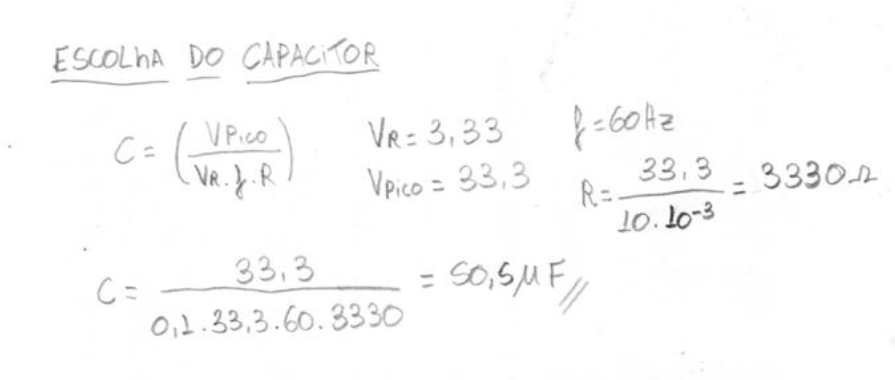 ESCOLhA DO CAPACITOR
C = (VPico / VR.f.R) VR = 3,33 f = 60Hz
VPico = 33,3 R = 33,3 / 10.10⁻³ = 3330Ω
C = 33,3 / 0,1.33,3.60.3330 = 50,5μF//